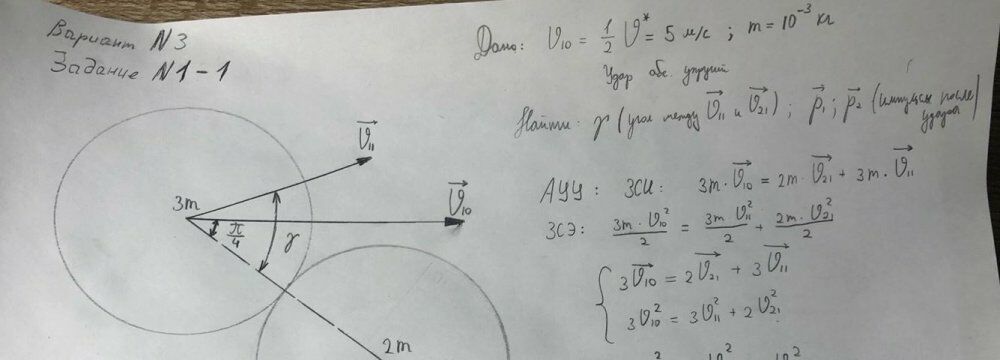 Вариант №3
Задание №1-1
Дано: V₁₀ = 1/2 V* = 5 м/с ; m = 10⁻³ кг
Удар абс. упругий
Найти: γ (угол между V⃗₁₁ и V⃗₂₁) ; p⃗₁ ; p⃗₂ (импульсы после удара)
АУУ: ЗСИ: 3m · V⃗₁₀ = 2m · V⃗₂₁ + 3m · V⃗₁₁
ЗСЭ: 3m · V₁₀²/2 = 3m V₁₁²/2 + 2m · V₂₁²/2
3V⃗₁₀ = 2V⃗₂₁ + 3V⃗₁₁
3V₁₀² = 3V₁₁² + 2V₂₁²
V⃗₁₁
3m
V⃗₁₀
π/4
γ
2m